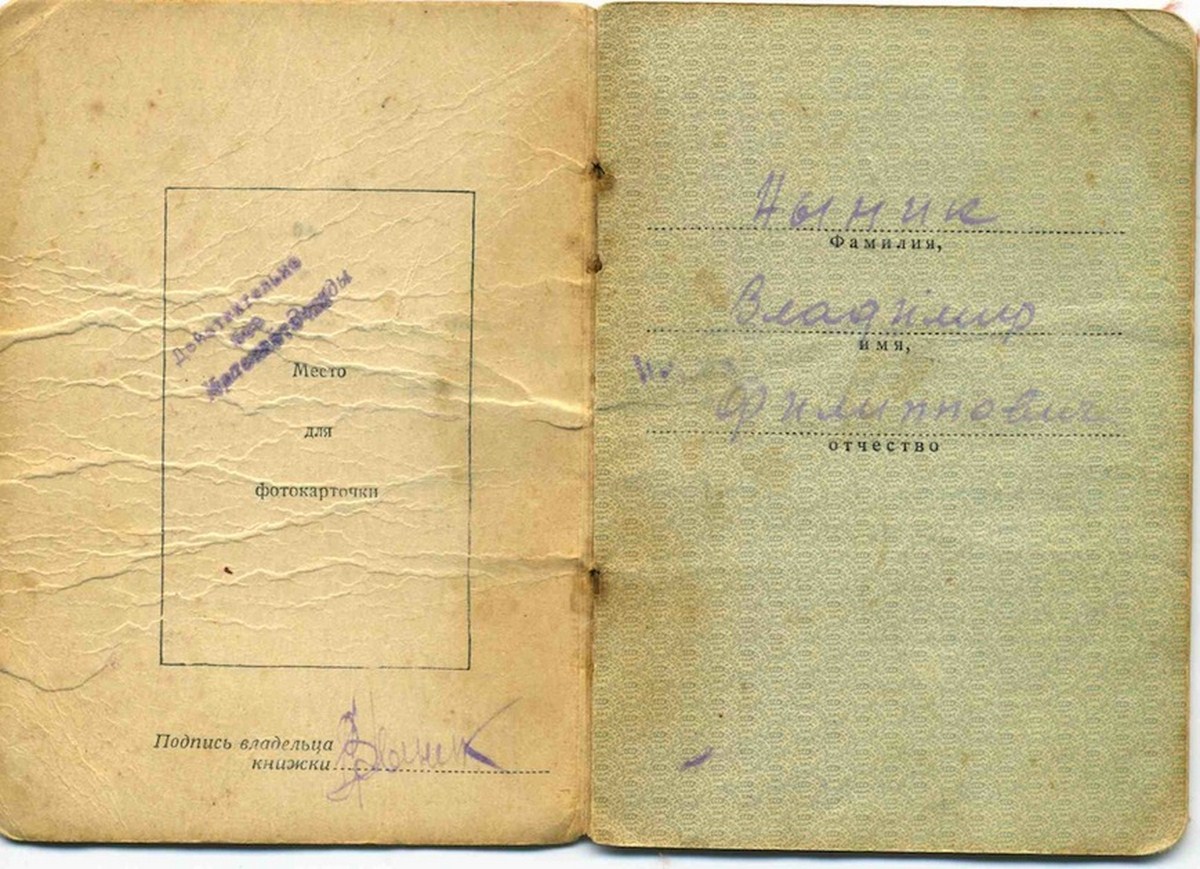 Действительно
Место
для
фотокарточки
Подпись владельца
книжки
Ныник
Фамилия,
Владимир
имя,
Филиппович
отчество